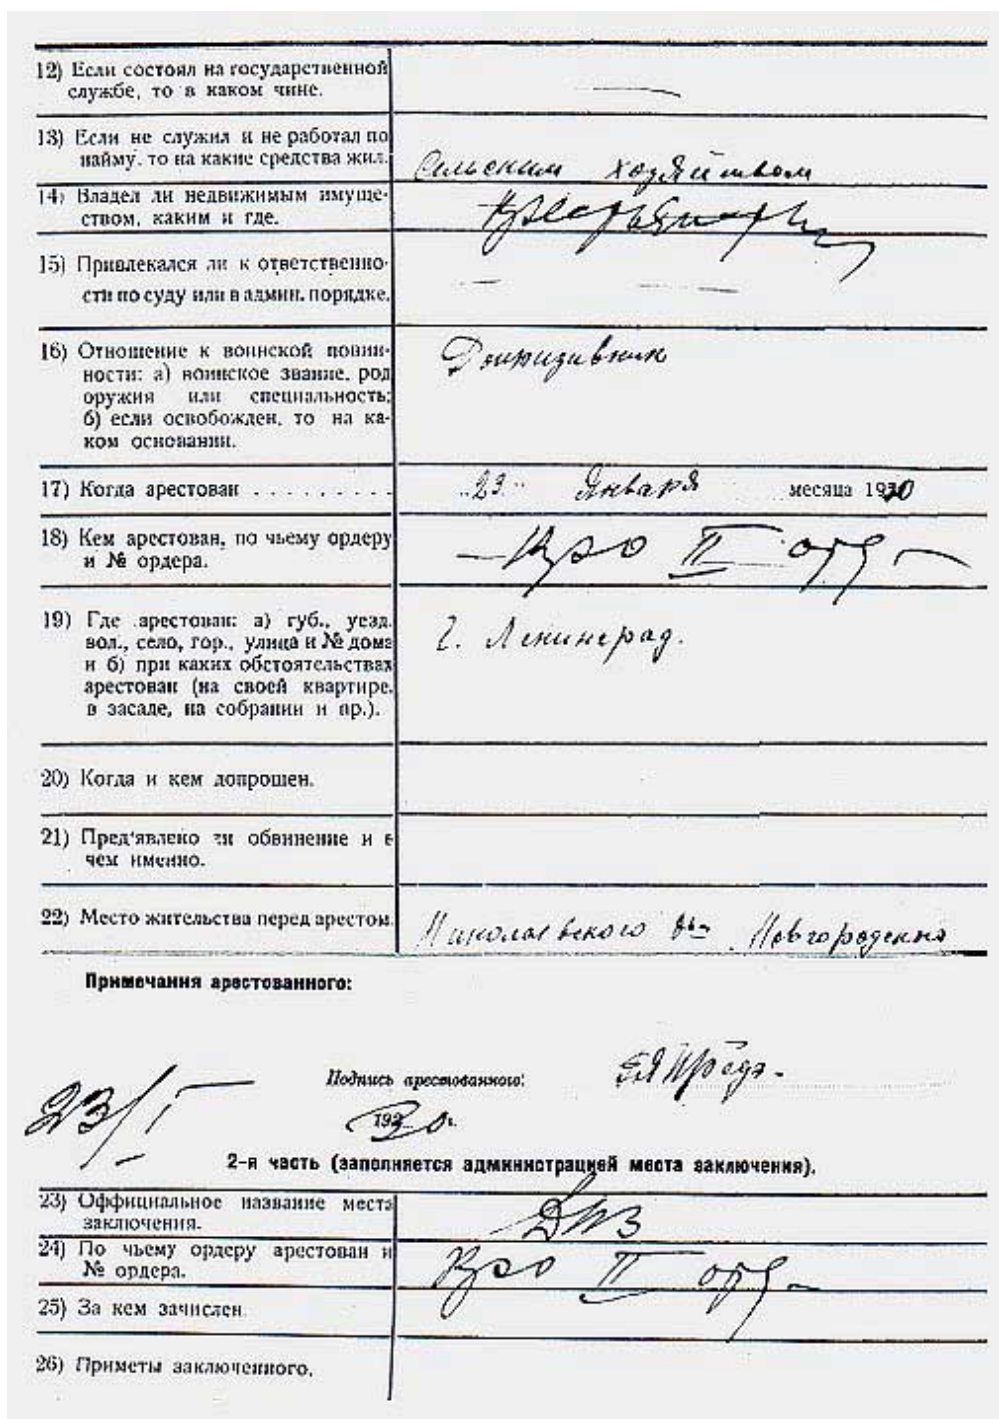 12) Если состоял на государственной
службе, то в каком чине.
13) Если не служил и не работал по
найму, то на какие средства жил.
Сельским хозяйством
14) Владел ли недвижимым имуще-
ством, каким и где.
15) Привлекался ли к ответственно-
сти по суду или в админ. порядке.
16) Отношение к воинской повин-
ности: а) воинское звание, род
оружия или специальность;
б) если освобожден, то на ка-
ком основании.
17) Когда арестован . . . . . . . . . „23" Января месяца 1930
18) Кем арестован, по чьему ордеру
и № ордера.
КРО II отд
19) Где арестован: а) губ., уезд.
вол., село, гор., улица и № дома
и б) при каких обстоятельствах
арестован (на своей квартире,
в засаде, на собрании и пр.).
г. Ленинград.
20) Когда и кем допрошен.
21) Пред'явлено ли обвинение и в
чем именно.
22) Место жительства перед арестом.
Николаевского
Примечания арестованного:
Подпись арестованного:
23/I 1930 г.
2-я часть (заполняется администрацией места заключения).
23) Оффициальное название места
заключения.
ДПЗ
24) По чьему ордеру арестован и
№ ордера.
КРО II отд
25) За кем зачислен.
26) Приметы заключенного.